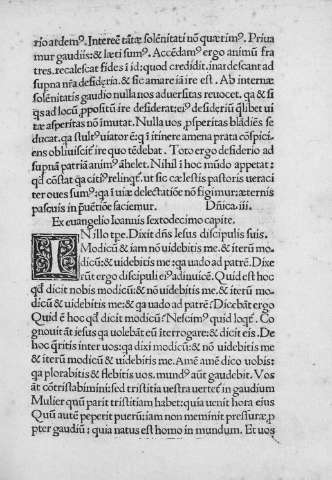 rio ardemꝰ. Intereē tātæ solēnitati nō quærimꝰ. Priua
mur gaudiis: & læti sumꝰ. Accēdamꝰ ergo animū fra
tres. recalescat fides i id: quod credidit. inardescant ad
supna nr̄a desideria. & sic amare iā ire est. Ab internæ
solēnitatis gaudio nulla nos aduersitas reuocet. qa & si
qs ad locū ꝓpositū ire desiderat: eiꝰ desideriū qlibet ui
tæ asperitas nō imutat. Nulla uos ꝓsperitas blādiēs se
ducat. qa stultꝰ uiator ē: q i itinere amena prata cōspici
ens obliuiscit ire quo tēdebat. Toto ergo desiderio ad
supnā patriā animꝰ āhelet. Nihil i hoc mūdo appetat:
qd cōstat qa citiꝰ relinqt. ut sic cælestis pastoris ueraci
ter oues sumꝰ: qa i uiæ delectatiōe nō figimur: æternis
pascuis in ꝑuētiōe saciemur. Dn̄ica. iii.
Ex euangelio Ioannis sextodecimo capite.
IN illo tpe. Dixit dn̄s Iesus discipulis suis.
Modicū & iam nō uidebitis me. & iterū mo-
dicū: & uidebitis me: qa uado ad patrē. Dixe
rūt ergo discipuli eiꝰ adiuicē. Quid est hoc
qd dicit nobis modicū: & nō uidebitis me. & iterū mo-
dicū & uidebitis me: & qa uado ad patrē? Dicebāt ergo
Quid ē hoc qd dicit modicū? Nescimꝰ quid loqt. Co
gnouit āt iesus qa uolebāt eū iterrogare: & dicit eis. De
hoc qritis inter uos: qa dixi modicū: & nō uidebitis me
& iterū modicū & uidebitis me. Amē amē dico uobis:
qa plorabitis & flebitis uos. mundꝰ aūt gaudebit. Vos
āt cōtristabimini: sed tristitia uestra uertet in gaudium
Mulier quū parit tristitiam habet: quia uenit hora eius
Quū autē peperit puerū: iam non meminit pressuræ ꝓ
pter gaudiū: quia natus est homo in mundum. Et uos